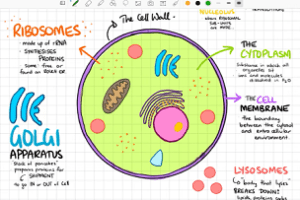 The Cell Wall
NUCLEOUS
where RIBOSOMAL
RIBOSOMES
made up of rRNA
SYNTHESISES
PROTEINS
some free or
found on ROUGH ER
GOLGI
APPARATUS
"Stack of pancakes"
prepares proteins for
SHIPMENT
to go IN or OUT of Cell
THE
CYTOPLASM
Substance in which all
organelles sit
ions and molecules
dissolved in H₂O
THE CELL
MEMBRANE
the boundary
between the cytosol
and extra cellular
environment
LYSOSOMES
body that lyses
BREAKS DOWN!